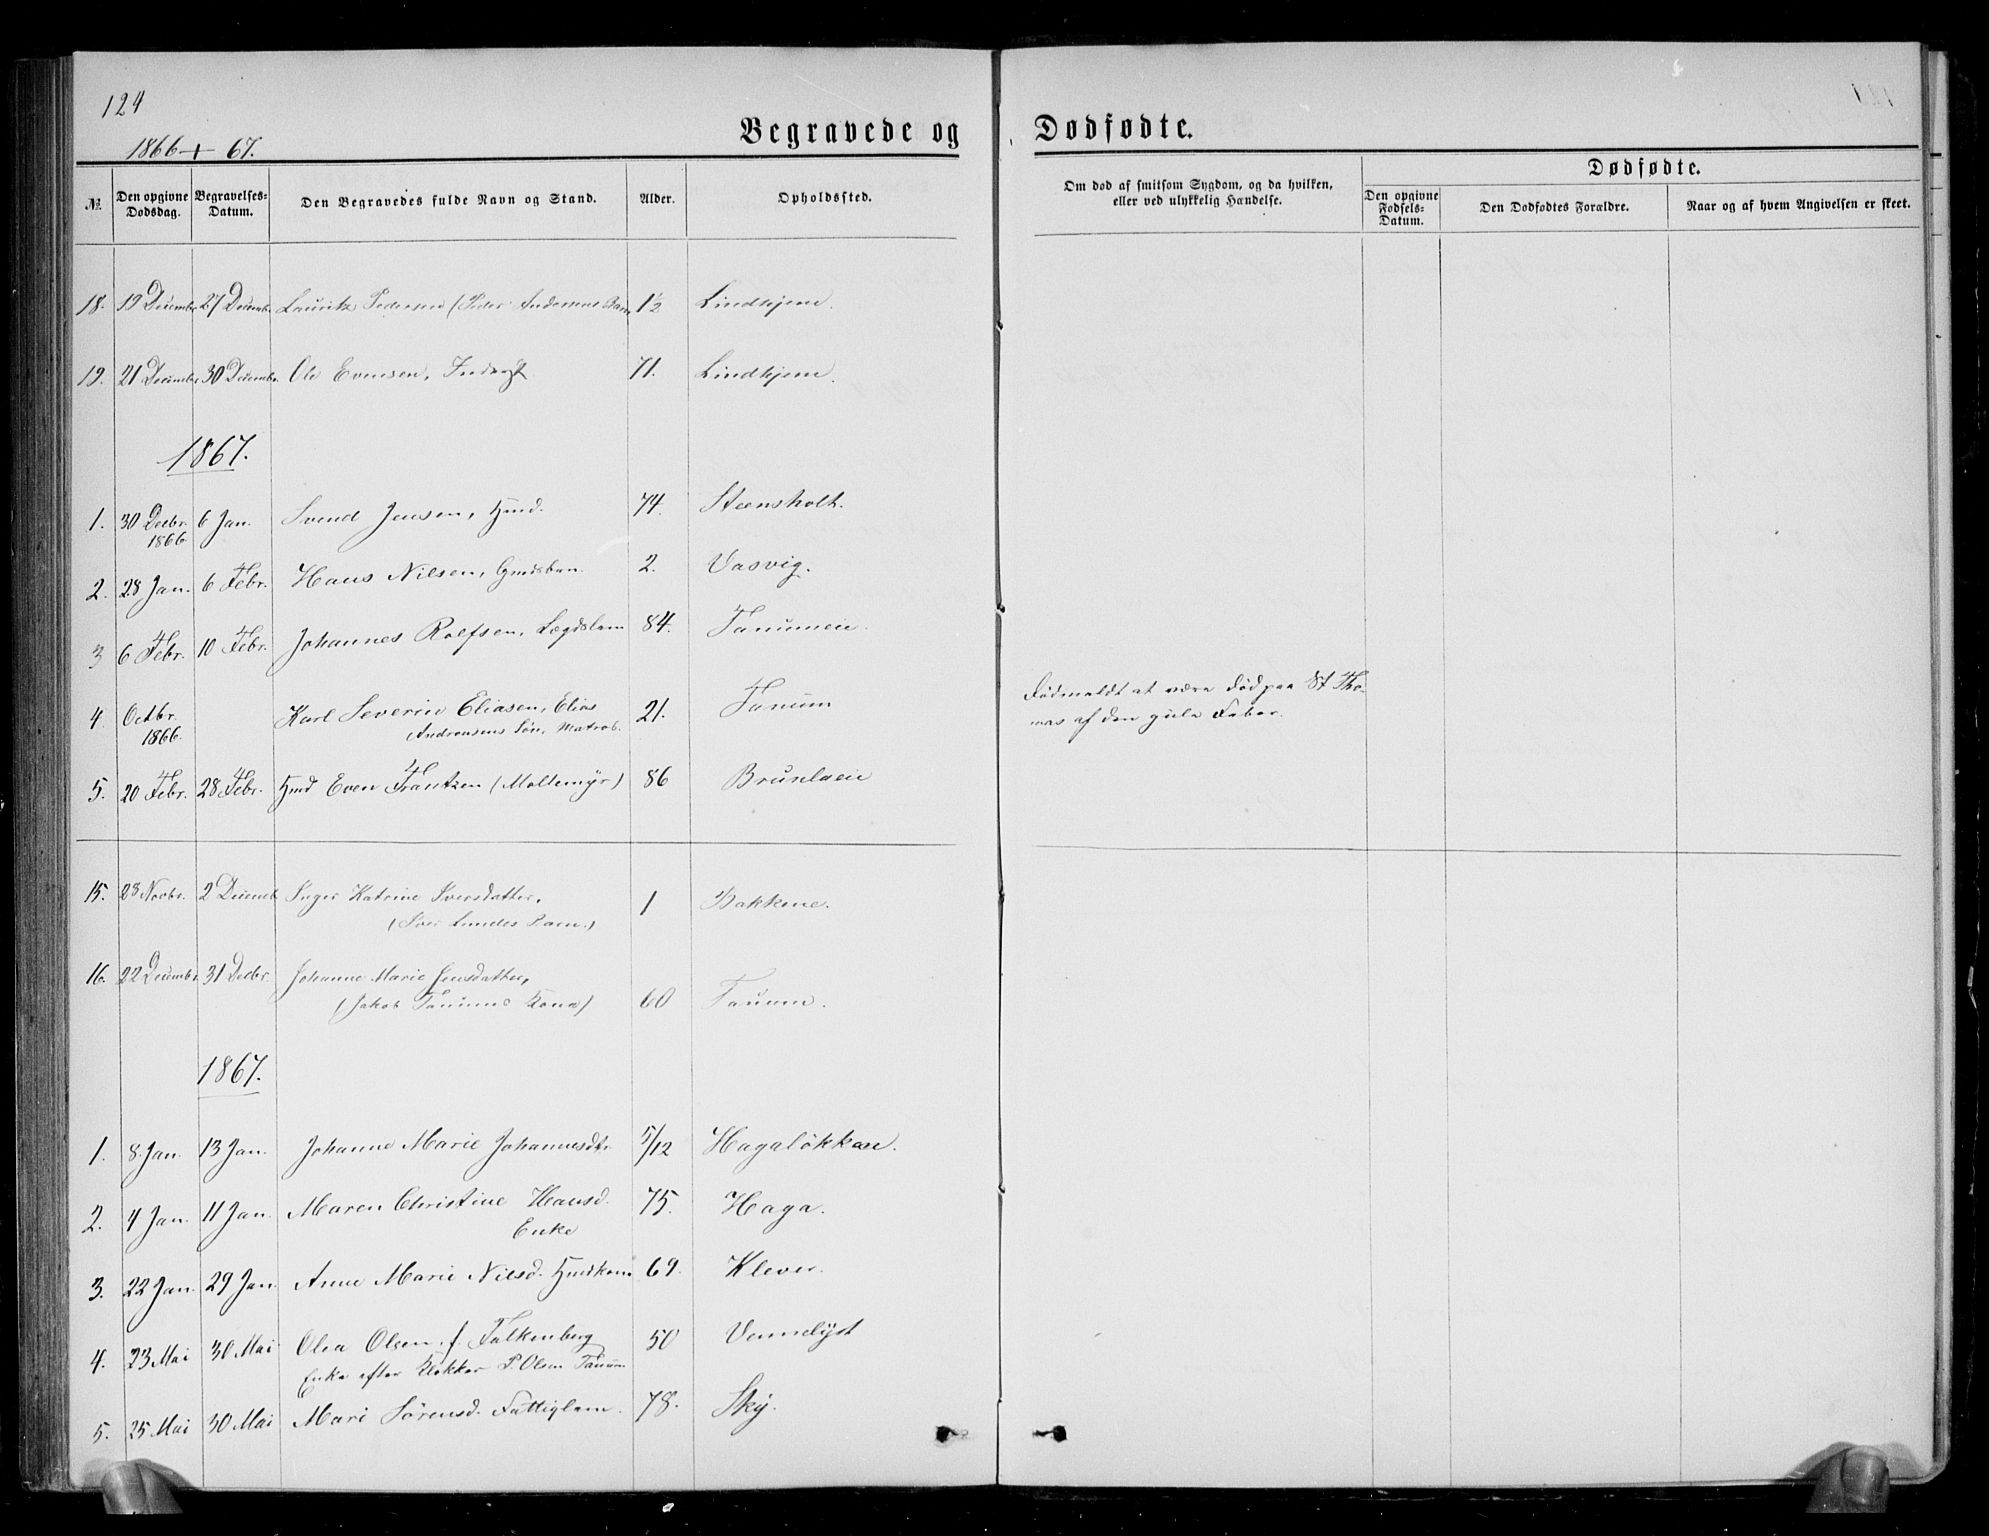 124
1866 + 67.
Begravede og Dødfødte.
№
Den opgivne Dødsdag.
Begravelses-Datum.
Den Begravedes fulde Navn og Stand.
Alder.
Opholdssted.
Om død af smitsom Sygdom, og da hvilken, eller ved ulykkelig Hændelse.
Dødfødte.
Den opgivne Fødsels-Datum.
Den Dødfødtes Forældre.
Naar og af hvem Angivelsen er skeet.
18. 19 Decembr 27 Decembr Lauritz Pedersen (Peder Andersens Barn 1½ Lindhjem.
19. 21 Decembr 30 Decembr Ole Evensen, 71. Lindhjem.
1867.
1. 30 Decbr. 6 Jan. Svend Jensen, Hmd. 74. Steensholt.
1866
2. 28 Jan. 6 Febr. Hans Nilsen, Gmdsbarn 2. Vasvig.
3 6 Febr. 10 Febr. Johannes Rolfsen, Lægdslem 84. Tanumeie.
4. Octbr. Karl Severin Eliasen, Elias 21. Tanum
1866. Andreasens Søn, Matros.
Dødmeldt at være død paa St Tho-
mas af den gule Feber.
5. 20 Febr. 28 Febr. Hmd Even Frantzen (Moltemyr) 86 Brunlaeie
15. 28 Novbr. 2 Decemb Inger Katrine Iversdatter, 1 Bakkene.
(Iver Lundes Barn.)
16. 22 Decembr. 31 Decbr. Johanne Marie Jensdatter,
(Jakob Tanums Kone) 60 Tanum.
1867.
1. 8 Jan. 13 Jan. Johanne Marie Johannesdtr. 5/12 Hagaløkken.
2. 4 Jan. 11 Jan. Maren Christine Hansd. 75. Haga.
Enke
3. 22 Jan. 29 Jan. Anne Marie Nilsd. Hmdkone 69. Klever.
4. 23 Mai 30 Mai Olea Olsen f. Falkenberg 50 Vennelyst
Enke efter Klokker P. Olsen Tanum
5. 25 Mai 30 Mai Mari Sørensd. Fattiglem. 78. Sky.